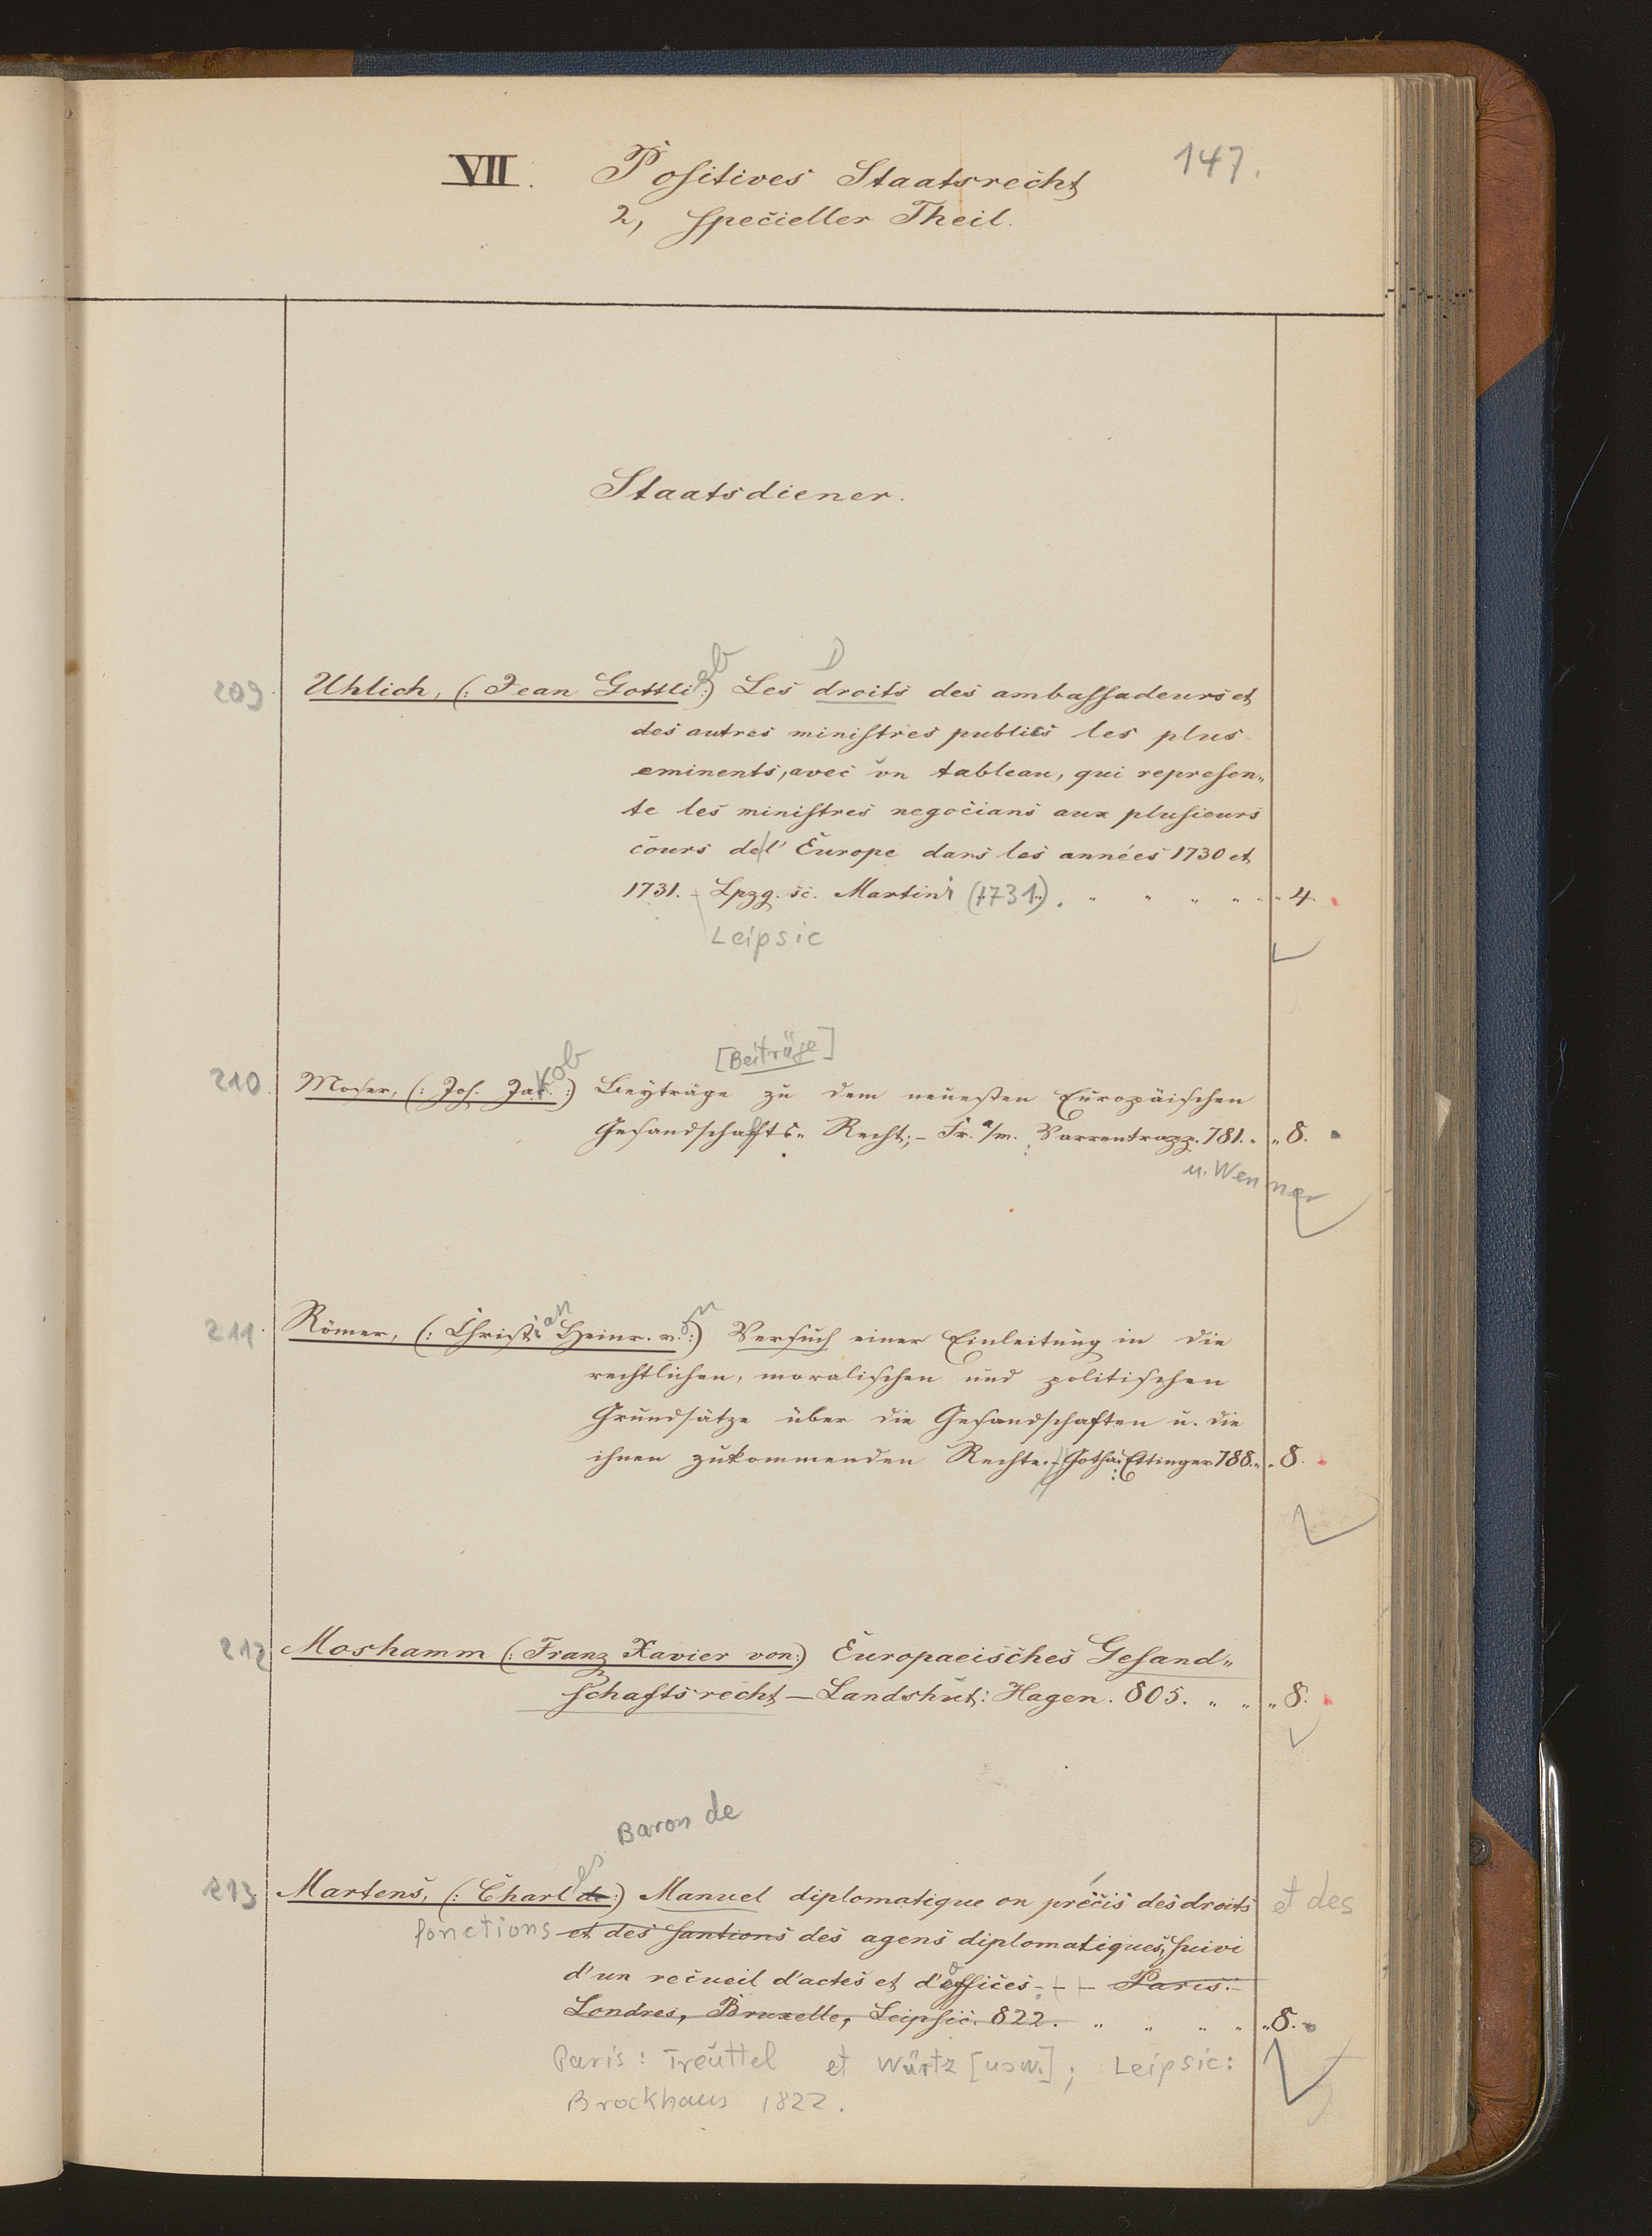 VII. Positives Staatsrecht 147.
2, specieller Theil.
Staatsdiener.
209. Uhlich, (: Jean Gottlieb :) Les droits des ambassadeurs et
des autres ministres publics les plus
eminents, avec un tableau, qui represen„
te les ministres negocians aux plusieurs
cours de l' Europe dans les années 1730 et
1731. – Lpzg. sc. Martini (1731.) . „ „ „ „ „ 4.
Leipsic
[Beiträge]
210. Moser, (: Joh. Jakob :) Beyträge zu dem neuesten Europäischen
Gesandschafts„ Recht; – Fr. a/m. Varrentrapp. 781. „ „ 8.
u. Wenner
211. Römer, (: Christian Heinr. von :) Versuch einer Einleitung in die
rechtlichen, moralischen und politischen
Grundsätze über die Gesandschaften u. die
ihnen zukommenden Rechte. – Gotha: Ettinger 788. „ „ 8.
212 Moshamm (: Franz Xavier von :) Europaeisches Gesand„
schaftsrecht – Landshut: Hagen. 805. „ „ „ 8.
Baron de
213. Martens, (: Charles de :) Manuel diplomatique ou précis des droits et des
fonctions et des fantions des agens diplomatiques, suivi
d'un recueil d'actes et d'offices – – – Paris. –
Londres, Bruxelle, Leipsic. 822. „ „ „ „ „ 8.
Paris: Treuttel et Würtz [usw.]; Leipsic:
Brockhaus 1822.